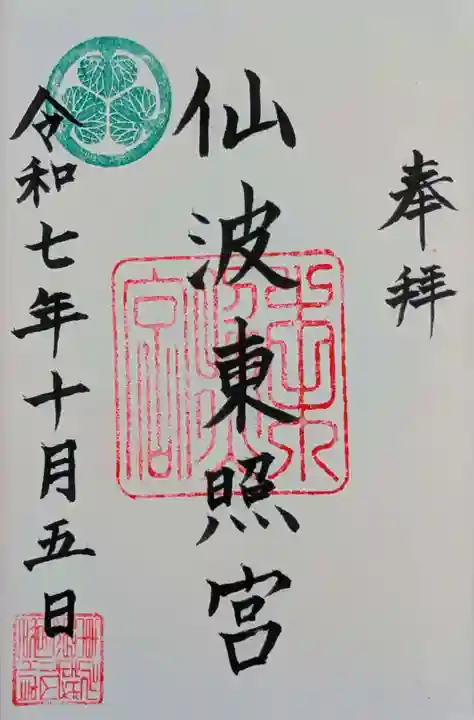 奉拝
仙波東照宮
令和七年十月五日